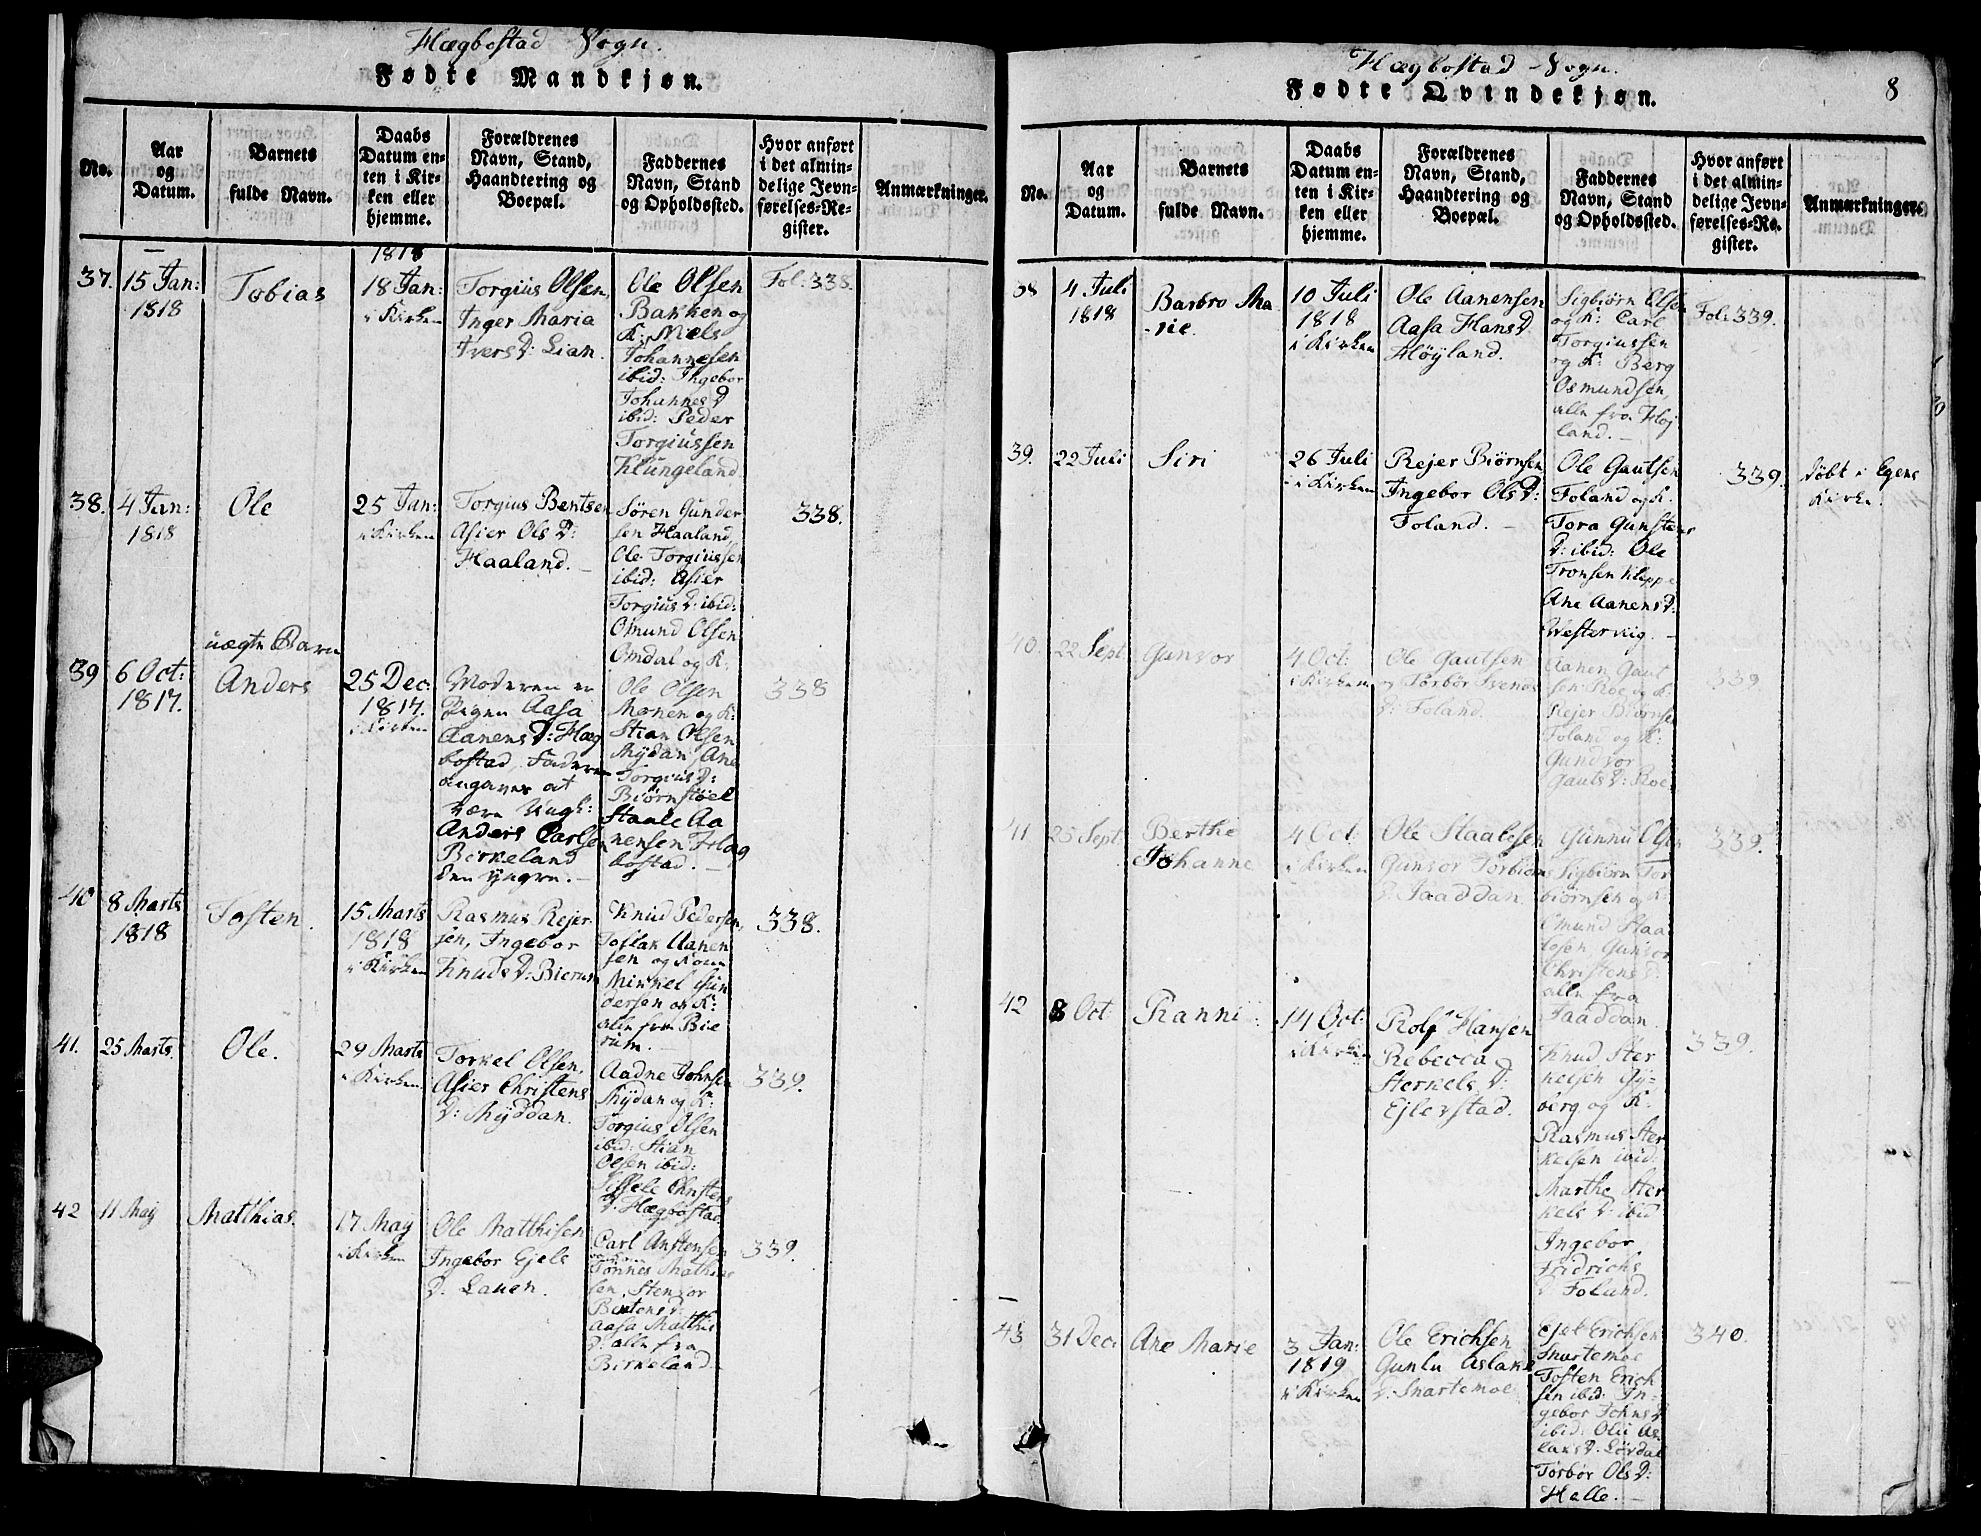 Hægbostad Sogn.
Fødte Mandkjøn.
No.
Aar
og
Datum.
Barnets
fulde Navn.
Daabs
Datum en-
ten i Kir-
ken eller
hjemme.
Forældrenes
Navn, Stand,
Haandtering og
Boepæl.
Faddernes
Navn, Stand
og Opholdssted.
Hvor anført
i det almin-
delige Jevn-
førelses-Re-
gister.
Anmærkninger.
37.
15 Jan:
1818
Tobias
1818
18 Jan:
i Kirken
Torgius Olsen,
Inger Maria
Ivers D: Lian.
Ole Olsen
Bakken og
K: Niels
Johannesen
ibid: Ingebor
Johannes D
ibid: Peder
Torgiussen
Klungeland
Fol: 338.
38.
4 Jan:
1818
Ole
25 Jan:
i Kirken
Torgius Bentsen
Asier Ols D:
Haaland.
Søren Gunder
sen Haaland,
Ole Torgiussen
ibid: Asier
Torgius D: ibid:
Omund Olsen
Omdal og K:
338.
39
6 Oct:
1817.
uægte Barn
Anders
25 Dec:
1817.
i Kirken
Moderen er
Pigen Aasa
Aanens D: Hæg
bostad, Faderen
angaves at
være Ungk:
Anders Carlsen
Birkeland
den yngre.
Ole Olsen
Monen og K:
Stian Olsen
Mÿdan, Ane
Torgius D:
Biørnstøel
Staale Aa
nensen Hæg
bostad.
338
40
8 Marts
1818
Tosten.
15 Marts
1818
i Kirken
Rasmus Rejer
sen, Ingebor
Knuds D: Bierum
Knud Pedersen,
Toslak Aanen
sen og Kone
Mikkel Gun
dersen og K:
alle fra Bie
rum.
338.
41.
25 Marts.
Ole.
29 Marts
i Kirken
Torkel Olsen,
Asier Christens
D: Mÿddan.
Aadne Johnsen
Mÿdan og K:
Torgius Olsen
ibid: Stian
Olsen ibid:
Sissele Christens
D: Hægbostad
339.
42
11 Maj
Matthias.
17 Maj
i Kirken
Ole Matthisen
Ingebor Ejels
D: Lauen.
Carl Anstensen
Tønnes Mathias
sen, Stensor
Bentens D:
Aasa Matthis
D: alle fra
Birkeland.
339.
Hægbostad Sogn.
8
Fødte Qvindekjøn.
No.
Aar
og
Datum.
Barnets
fulde Navn.
Daabs
Datum en-
ten i Kir-
ken eller
hjemme.
Forældrenes
Navn, Stand,
Haandtering og
Boepæl.
Faddernes
Navn, Stand
og Opholdssted.
Hvor anført
i det almin-
delige Jevn-
førelses-Re-
gister.
Anmærkninger.
38
4 Juli
1818
Barbro Ma
-rie.
10 Juli
1818
i Kirken
Ole Aanensen
Aasa Hans D:
Høÿland.
Sigbiørn Olsen
og K: Carl
Torgiussen
og K: Berg
Osmundsen,
alle fra Høj
land.
Fol: 339.
39.
22 Juli
Siri
26 Juli
i Kirken
Rejer Biørnsen
Ingebor Ols D:
Foland.
Ole Gautsen
Foland og K:
Tora Gunstens
D: ibid: Ole
Tronsen Kleppe
Ane Aanens D:
Westerviig.
339.
døbt i Egens
Kirke.
40.
22 Sept
Gunvor
4 Oct:
i Kirken
Ole Gautsen
og Torbor Svenes
D: Foland.
Aanen Gaut
sen Roe og K:
Rejer Biørnsen
Foland og K:
Gundvor
Gauts D: Roe
339.
41
25 Sept
Berthe
Johanne
4 Oct
i Kirken
Ole Staalesen
Gunvor Torbiøns
D: Saaddan.
Gunnu Olsen
Sigbiørn Tor
biørnsen og K:
Omund Staa
lesen Gunvor
Christens D:
alle fra
Saaddan.
339.
42
8 Oct
Ranni
14 Oct:
i Kirken
Rolf Hansen
Rebecca
Sterkels D:
Ejlerstad.
Knud Ster
kelsen Gÿ-
berg og K:
Rasmus Ster
kelsen ibid:
Marthe Ster
kels D: ibid
Ingebor
Fridrichs
D Foland.
339.
43
31 Dec:
Ane Marie
3 Jan:
1819
i Kirken
Ole Erichsen
Gunlu Aslaks
D: Snartemoe
Ejel Erichsen
Snartemoe
Tosten Erich
sen ibid: In-
gebor Johns D
ibid: Olu As
laks D: Lordal
Torbor Ols D:
Halle.
340.